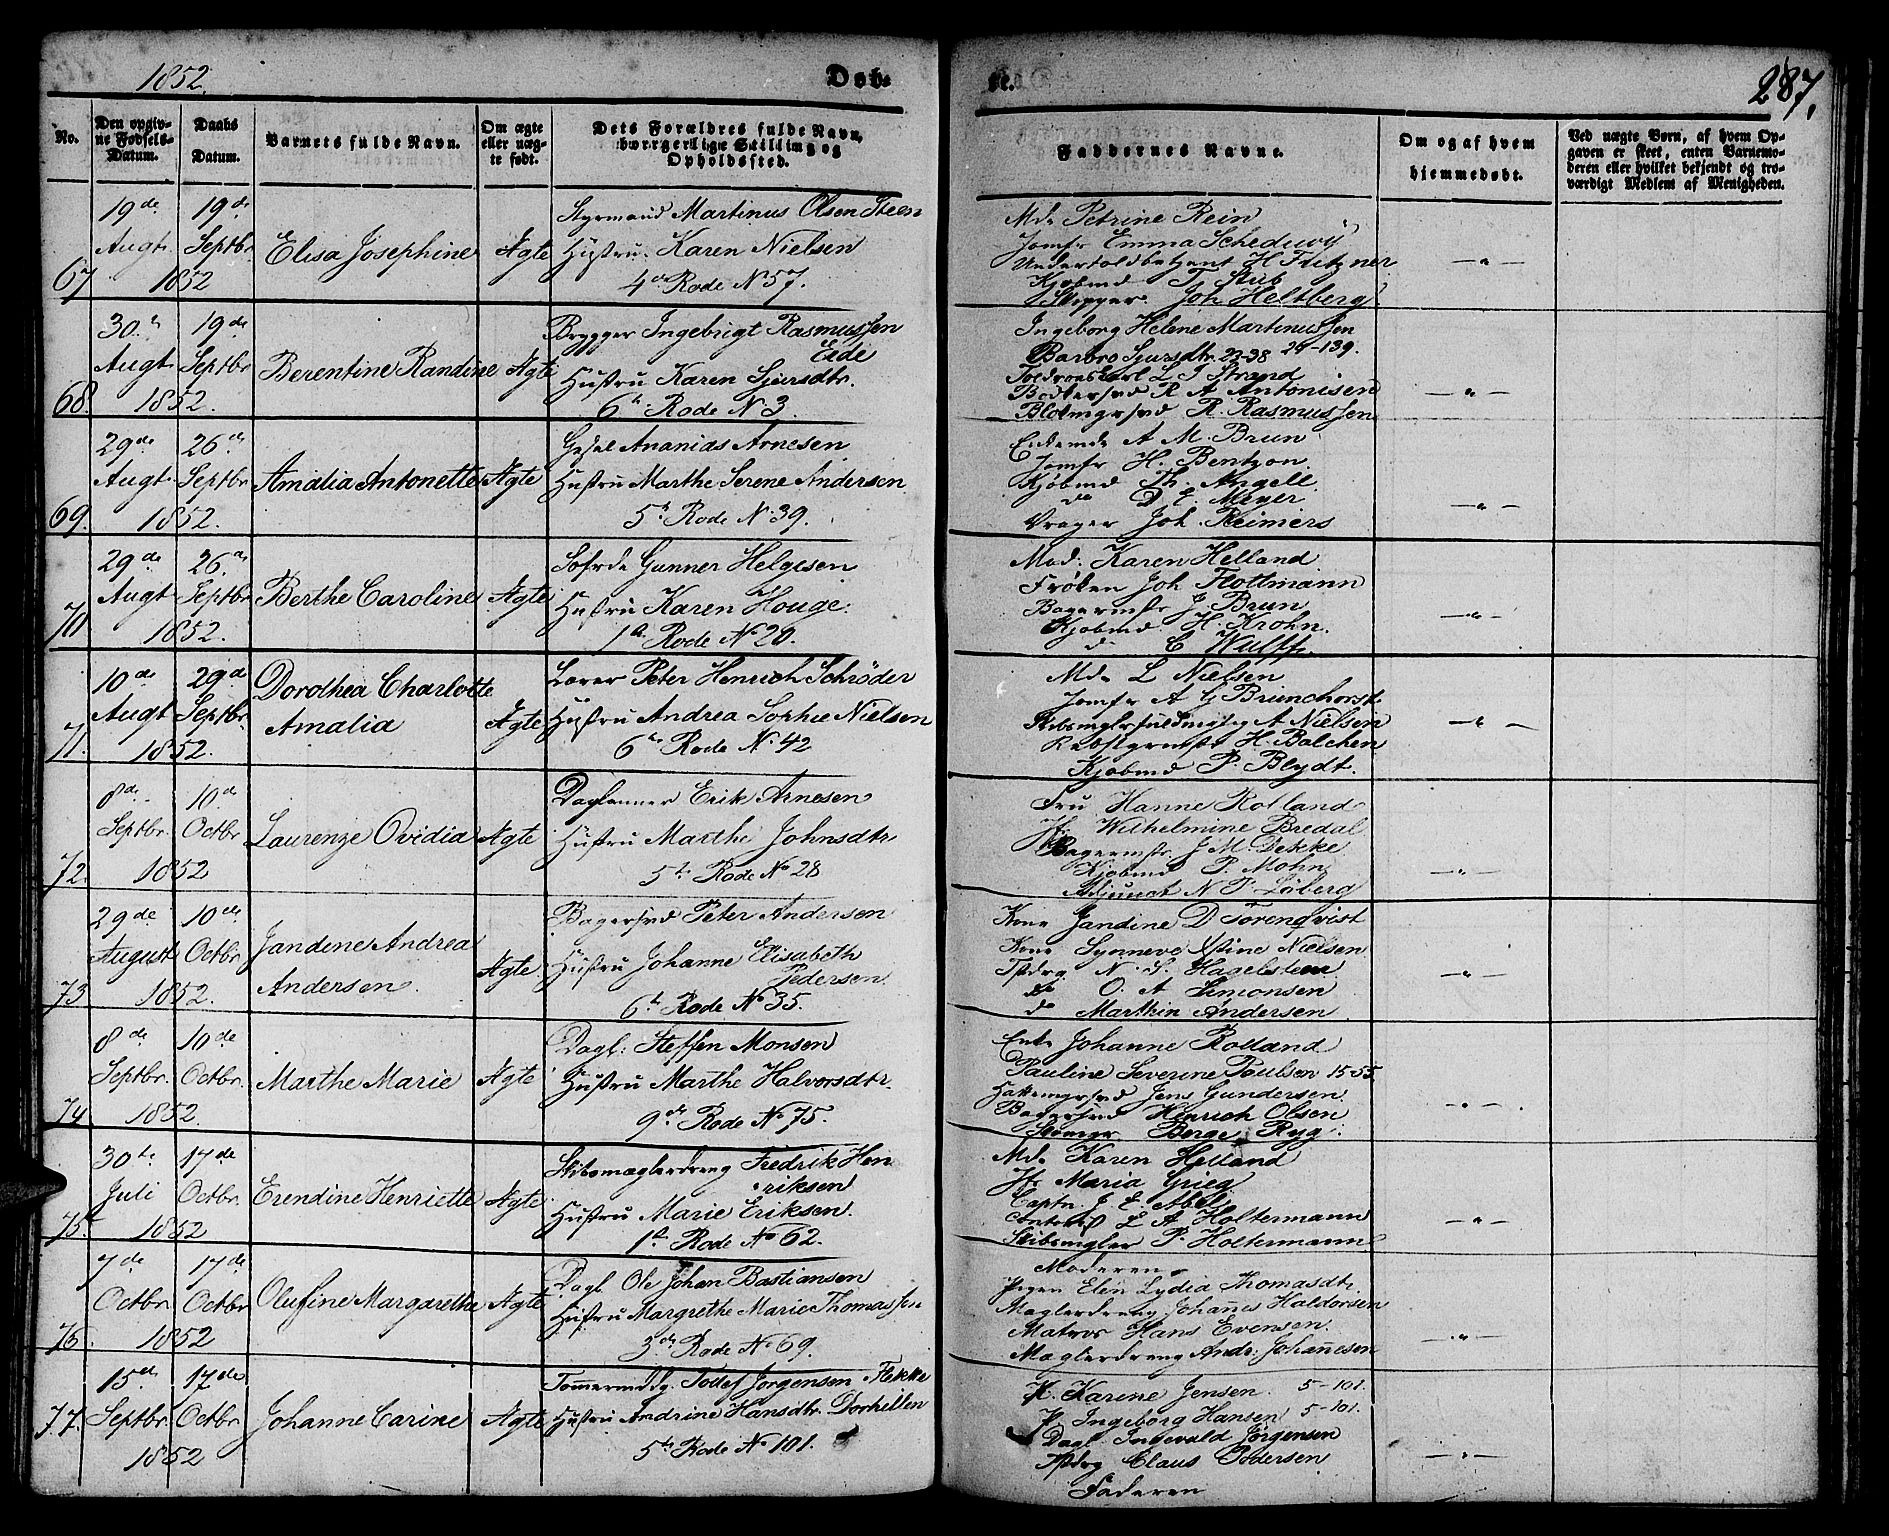 1852.
Døb-
te.
287.
No.
Den opgiv-
ne Fødsels-
Datum.
Daabs
Datum.
Barnets fulde Navn.
Om ægte
eller uæg-
te født.
Dets Forældres fulde Navn,
borgerlige Stilling og
Opholdssted.
Faddernes Navne.
Om og af hvem
hjemmedøbt.
Ved uægte Børn, af hvem Op-
gaven er skeet, enten Barnemo-
deren eller hvilket bekjendt og tro-
værdigt Medlem af Menigheden.
67
19de Augt. 1852
19de Septbr
Elisa Josephine
Ægte
Styrmand Martinus Olsen Steen
Hustru Karen Nielsen
4de Rode No 57.
Md. Petrine Rein
Jomfr Emma Schedewÿ
Undertoldbetjent H Fritzner
Kjøbmd T. Stub
Skipper Joh Heltberg
68.
30te Augt. 1852.
19de Septbr
Berentine Randine
Ægte
Brygger Ingebrigt Rasmussen
Eide
Hustru Karen Sjursdtr.
6te Rode No 3.
Ingeborg Helene Martinussen
Barbro Sjursdtr. 22-38 24-139.
L J Strand
R A Antonisen
R. Rasmussen
69.
29de Augt. 1852.
26de Septbr
Amalia Antonette
Ægte
Ananias Arnesen
Hustru Marthe Serene Andersen
5te Rode No 39.
A M. Brun
Jomfr H. Bentzon
Kjøbmd Th. Angell
do D E. Meyer
Vrager Joh. Reimers
70
29de Augt 1852.
26de Septbr
Berthe Caroline
Ægte
Gunner Helgesen
Hustru Karen Houge.
1ste Rode No 20.
Mad. Karen Helland
Frøken Joh Flottmann
Bagermstr J. Brun
Kjøbmd H. Krohn.
do C Wulff.
71.
10de Augt 1852.
29de Septbr.
Dorothea Charlotte
Amalia
Ægte
Peter Henrich Schröder
Hustru Andrea Sophie Nielsen
6te Rode No 42
Md. L Nielsen
Jomfr A G Brunchorst
A Nielsen
H. Balchen
Kjøbmd P. Blydt.
72.
8de Septbr. 1852
10de Octbr
Laurenze Ovidia
Ægte
Daglønner Erik Arnesen
Hustru Marthe Johnsdtr
5te Rode No 28
Fru Hanne Rolland
Jfr Wilhelmine Bredal
Bagermstr J M. Dekke
Kjøbmd P. Mohn
Adjunct N P. Løberg
73
29de August 1852.
10de Octbr
Jandine Andrea
Andersen.
Ægte
Bagersvd Peter Andersen
Hustru Johanne Elisabeth
Pedersen
6te Rode No 35.
Kone Jandine D Törenqvist
Kone Synneve Stine Nielsen
N. S. Hagelsteen
do O. A Simonsen
do Marthin Andersen
74
8de Septbr. 1852
10de Octbr.
Marthe Marie
Ægte
Dagl: Steffen Monsen
Hustru Marthe Halvorsdtr.
9de Rode No 75.
Enke Johanne Rolland
Pauline Severine Poulsen 15-55.
Jens Gundersen
Bagersvd Henrich Olsen
Børge Ryg.
75.
30te Juli 1852
17de Octbr
Erendine Henriette
Ægte
Skibsmæglerdreng Fredrik Hen
riksen
Hustru Marie Eriksen.
1ste Rode No 62.
Md. Karen Helland
Jfr Maria Grieg
Captn J. E. Abel
L A Holtermann
Skibsmægler P. Holtermann
76.
7de Octbr 1852
17de Octbr
Olufine Margarethe
Ægte
Dagl Ole Johan Bastiansen
Hustru Margrethe Marie Thomassen
3de Rode No 69.
Moderen
Pigen Elen Lydia Thomasdtr
Mæglerdreng Johannes Haldorsen
Matros Hans Evensen
Mæglerdreng Andr. Johannesen
77.
15de Septbr 1852
17de Octbr
Johanne Carine
Ægte
Tømmermd Tollef Jørgensen Flekke
Hustru Andrine Hansdtr. Dorhillen
5te Rode No 101.
K. Karine Jensen 5-101.
P. Ingeborg Hansen 5-101.
Dagl. Ingevald Jørgensen
Claus Pedersen
Faderen